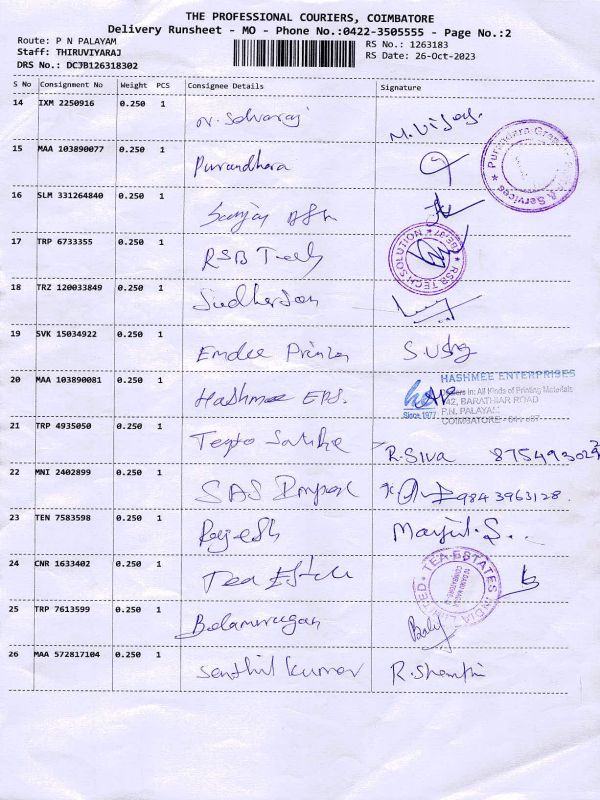 THE PROFESSIONAL COURIERS, COIMBATORE
Delivery Runsheet - MO - Phone No.:0422-3505555 - Page No.:2
Route: P N PALAYAM
Staff: THIRUVIYARAJ
DRS No.: DCJB126318302
RS No.: 1263183
RS Date: 26-Oct-2023
S No Consignment No Weight PCS Consignee Details Signature
14 IXM 2250916 0.250 1 N. Selvaraj M. Vijay.
15 MAA 103890077 0.250 1 Purandhara
16 SLM 331264840 0.250 1 Sanjay
17 TRP 6733355 0.250 1 RSB Tech
RSB TECH SOLUTION
18 TRZ 120033849 0.250 1 Sudharson
19 SVK 15034922 0.250 1 Emdee
20 MAA 103890081 0.250 1 Hashmee EPS.
HASHMEE ENTERPRISES
Dealers in: All Kinds of Printing Materials
BARATHIAR ROAD
P.N. PALAYAM
COIMBATORE
Since 1977
21 TRP 4935050 0.250 1 R. Siva
22 MNI 2402899 0.250 1 SAS 9843963128.
23 TEN 7583598 0.250 1 Rajesh
24 CNR 1633402 0.250 1 Tea Estate
TEA ESTATES INDIA LIMITED
25 TRP 7613599 0.250 1 Balamurugan
26 MAA 572817104 0.250 1 Senthil kumar